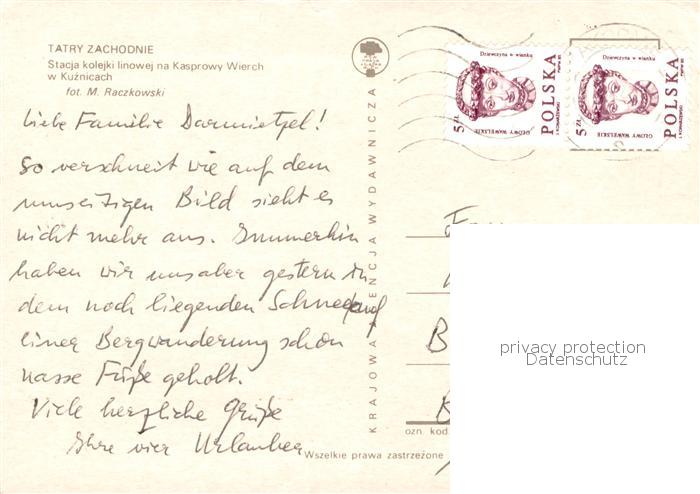 TATRY ZACHODNIE
Stacja kolejki linowej na Kasprowy Wierch
w Kuźnicach
fot. M. Raczkowski
Liebe Familie Darmietzel!
So verschneit wie auf dem
umseitigen Bild sieht es
nicht mehr aus. Immerhin
haben wir uns aber gestern in
dem noch liegenden Schnee auf
einer Bergwanderung schon
nasse Füße geholt.
Viele herzliche Grüße
Ihre vier Urlauber
KRAJOWA AGENCJA WYDAWNICZA
Dziewczyna w wianku
5 ZŁ
GŁOWY WAWELSKIE
POLSKA
Dziewczyna w wianku
5 ZŁ
GŁOWY WAWELSKIE
POLSKA
B
ozn. kod
Wszelkie prawa zastrzeżone
privacy protection
Datenschutz